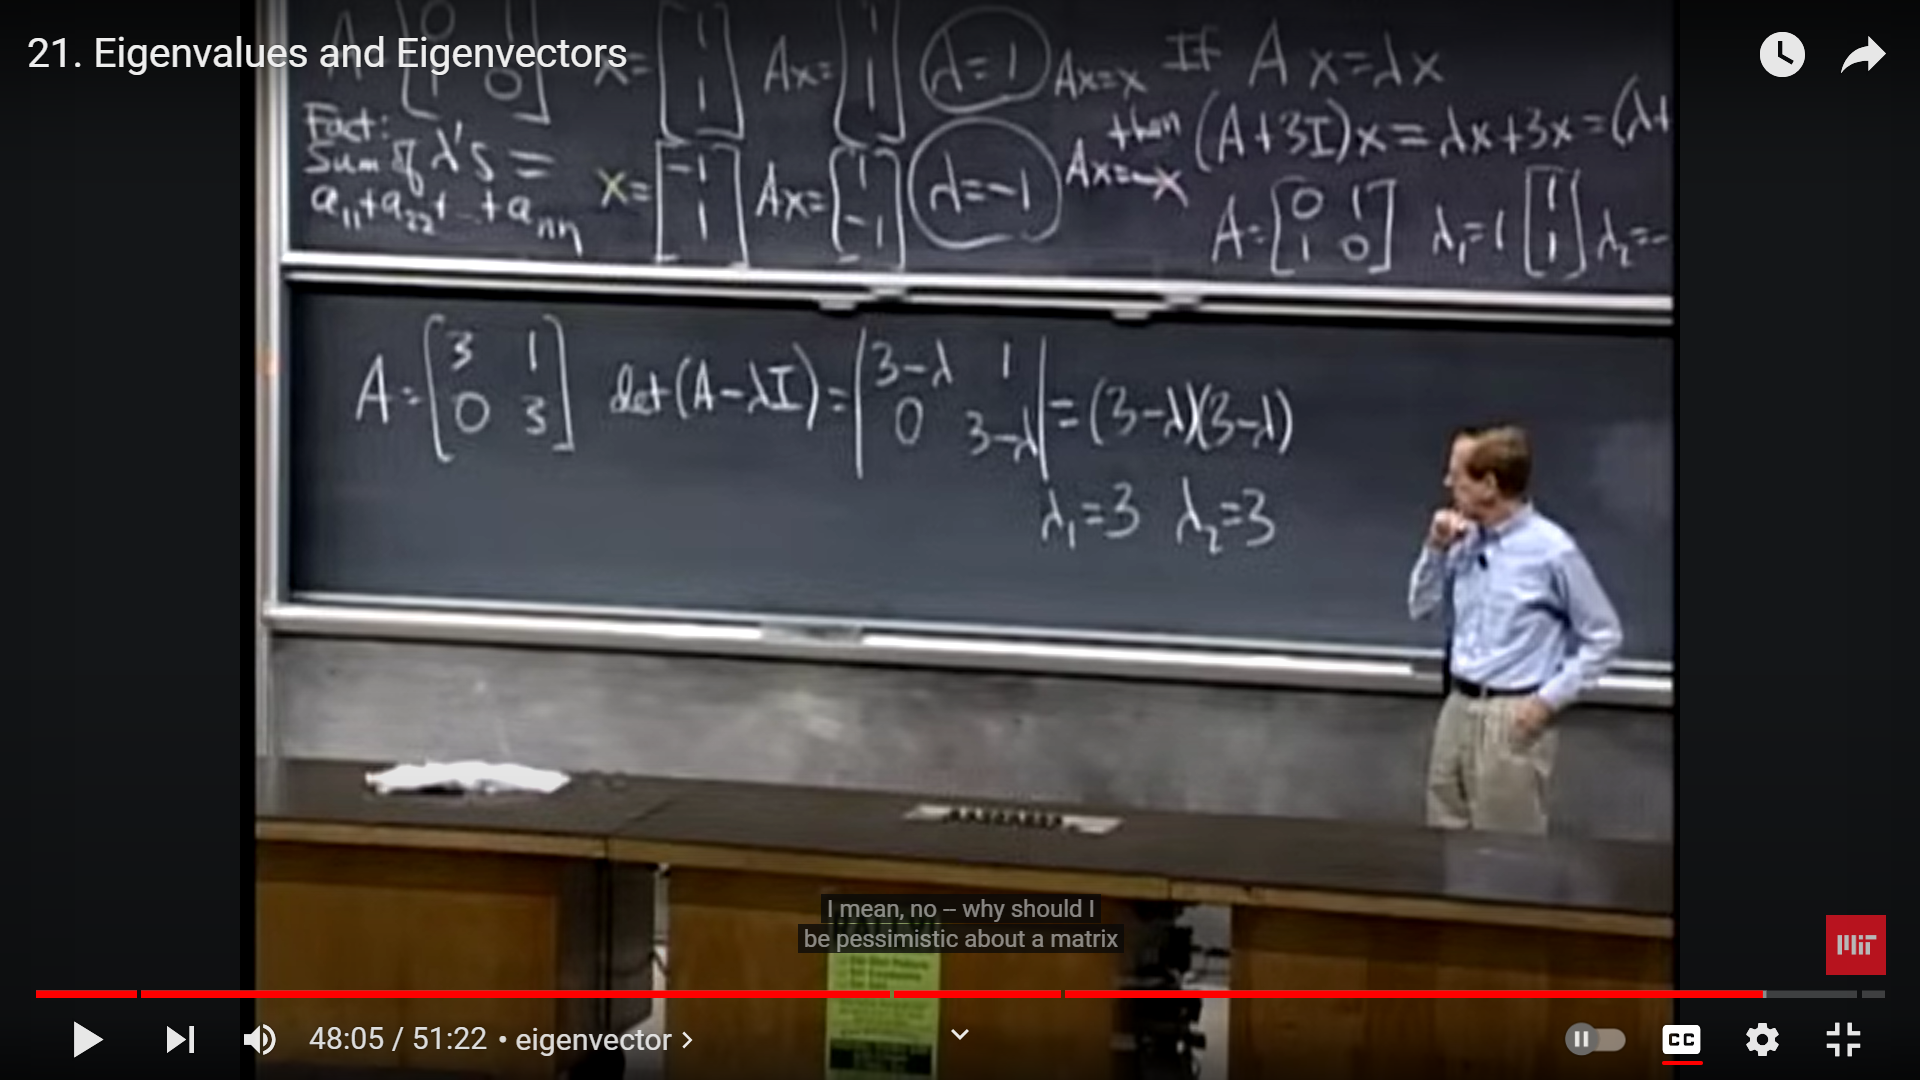 21. Eigenvalues and Eigenvectors
A = [0 1; 1 0] x = [1; 1] Ax = [1; 1] λ=1 Ax=x
Fact:
Sum of λ's =
a₁₁+a₂₂+...+aₙₙ
x = [-1; 1] Ax = [1; -1] λ=-1 Ax=-x
If Ax=λx
then (A+3I)x = λx+3x = (λ+
A = [0 1; 1 0] λ₁=1 [1; 1] λ₂=-
A = [3 1; 0 3] det(A-λI) = |3-λ 1; 0 3-λ| = (3-λ)(3-λ)
λ₁=3 λ₂=3
I mean, no -- why should I
be pessimistic about a matrix
MIT
48:05 / 51:22 • eigenvector >
CC